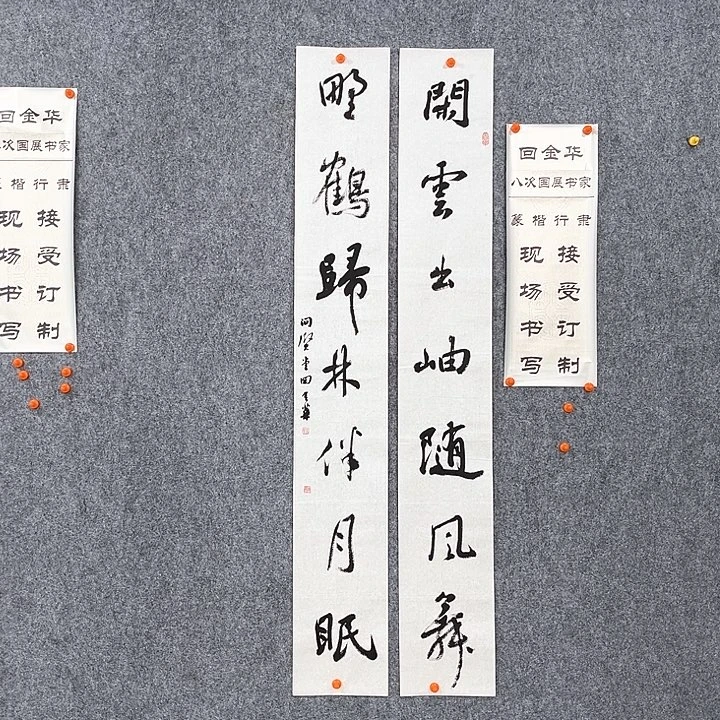 閑雲出岫随風舞
野鶴歸林伴月眠
問賢堂回金華
回金华
八次国展书家
篆楷行隶
现场书写
接受订制
回金华
次国展书家
楷行隶
现场书写
接受订制